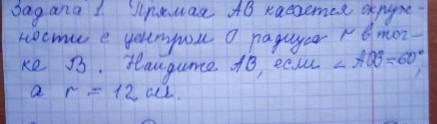 Задача 1. Прямая АВ касается окруж-
ности с центром О радиуса r в точ-
ке В. Найдите АВ, если ∠АОВ=60°,
а r = 12 см.